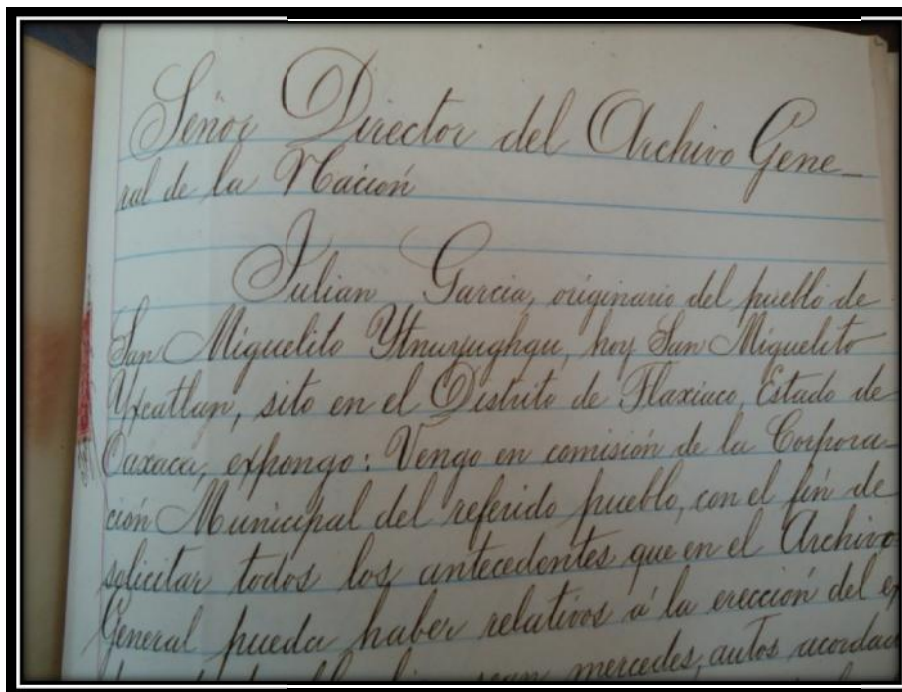 Señor Director del Archivo Gene-
ral de la Nación
Julian Garcia, originario del pueblo de
San Miguelito Ytnuyughqu, hoy San Miguelito
Yxcatlan, sito en el Distrito de Tlaxiaco, Estado de
Oaxaca, expongo: Vengo en comisión de la Corpora-
ción Municipal del referido pueblo, con el fin de
solicitar todos los antecedentes que en el Archivo
General pueda haber relativos á la erección del
sean mercedes, autos